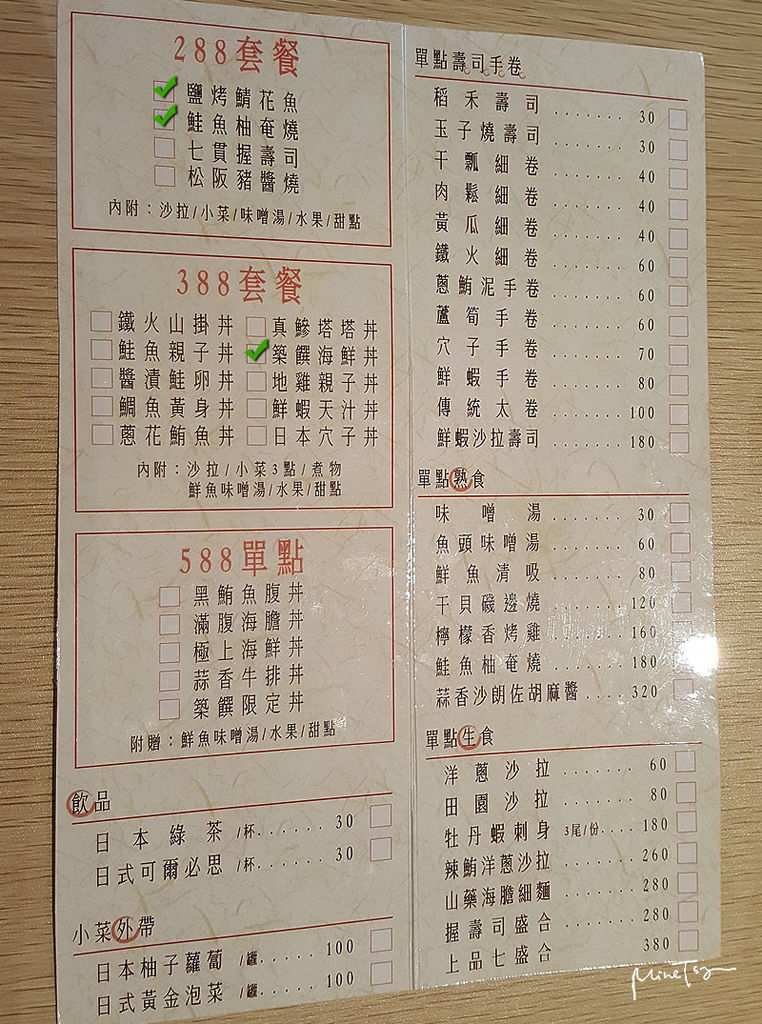 288套餐
鹽烤鯖花魚
鮭魚柚奄燒
七貫握壽司
松阪豬醬燒
內附：沙拉/小菜/味噌湯/水果/甜點
388套餐
鐵火山掛丼 真鰺塔塔丼
鮭魚親子丼 築饌海鮮丼
醬漬鮭卵丼 地雞親子丼
鯛魚黃身丼 鮮蝦天汁丼
蔥花鮪魚丼 日本穴子丼
內附：沙拉/小菜3點/煮物
鮮魚味噌湯/水果/甜點
588單點
黑鮪魚腹丼
滿腹海膽丼
極上海鮮丼
蒜香牛排丼
築饌限定丼
附贈：鮮魚味噌湯/水果/甜點
飲品
日本綠茶 /杯...... 30
日式可爾必思 /杯...... 30
小菜外帶
日本柚子蘿蔔 /罐..... 100
日式黃金泡菜 /罐..... 100
單點壽司手卷
稻禾壽司 ....... 30
玉子燒壽司 ....... 30
干瓢細卷 ....... 40
肉鬆細卷 ....... 40
黃瓜細卷 ....... 40
鐵火細卷 ....... 60
蔥鮪泥手卷 ....... 60
蘆筍手卷 ....... 60
穴子手卷 ....... 70
鮮蝦手卷 ....... 80
傳統太卷 ....... 100
鮮蝦沙拉壽司 ....... 180
單點熟食
味噌湯 ....... 30
魚頭味噌湯 ....... 60
鮮魚清吸 ....... 80
干貝磯邊燒 ....... 120
檸檬香烤雞 ....... 160
鮭魚柚奄燒 ....... 180
蒜香沙朗佐胡麻醬 .... 320
單點生食
洋蔥沙拉 ....... 60
田園沙拉 ....... 80
牡丹蝦刺身 3尾/份.... 180
辣鮪洋蔥沙拉 ....... 260
山藥海膽細麵 ....... 280
握壽司盛合 ....... 280
上品七盛合 ....... 380